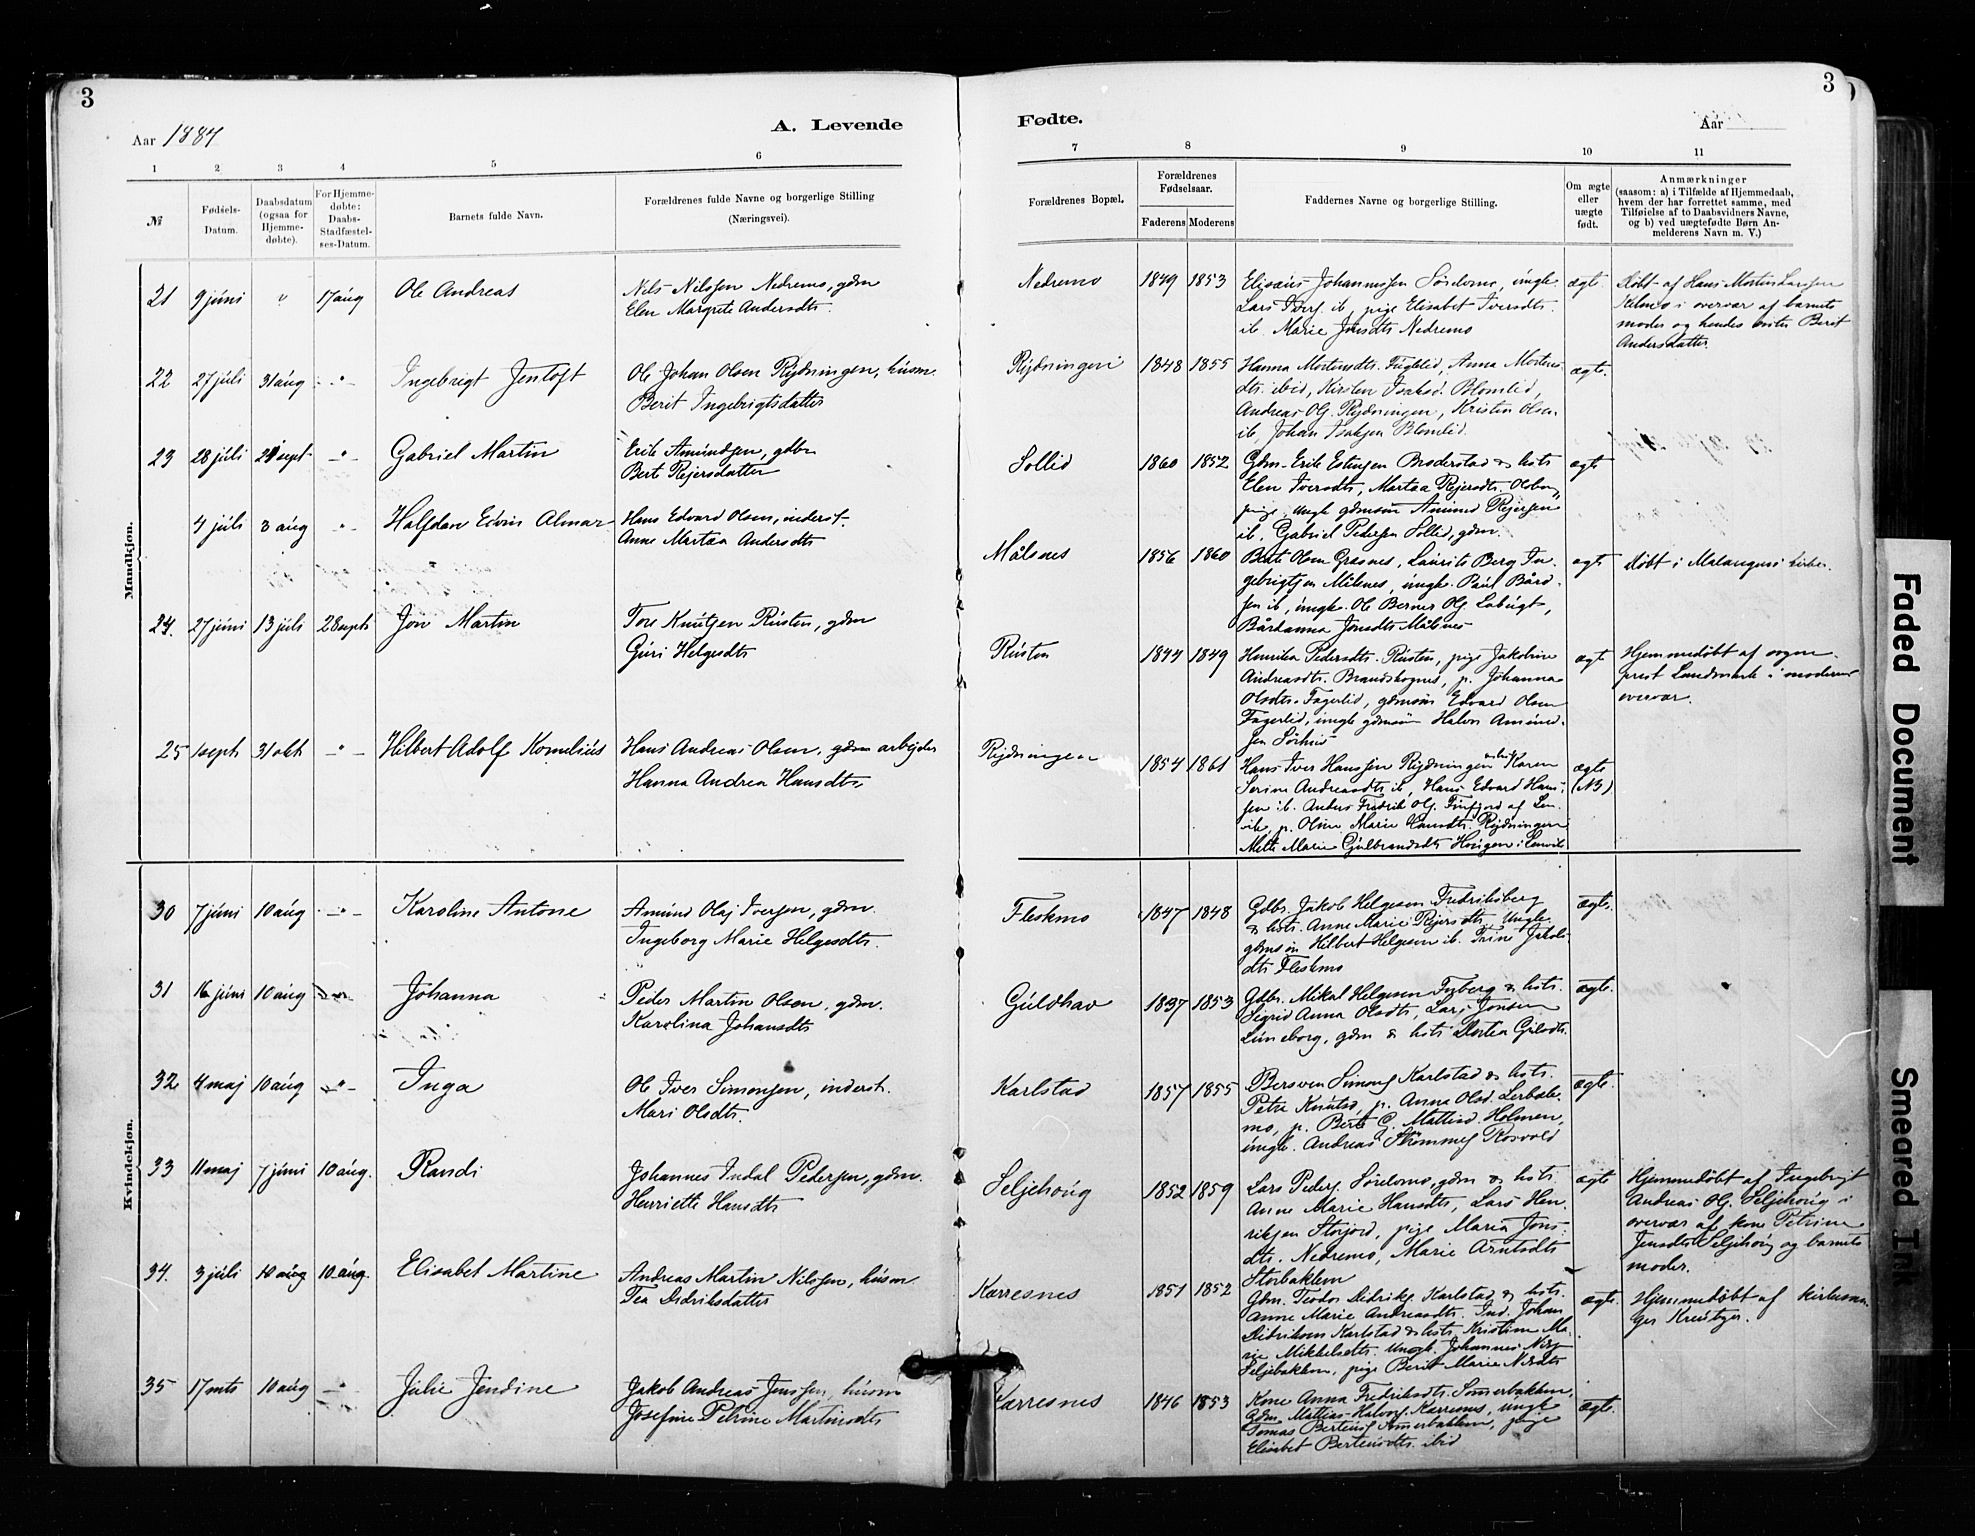 3
3
Aar 1884
A. Levende
Fødte.
Aar
1 2 3 4 5 6 7 8 9 10 11
№
Fødsels-Datum.
Daabsdatum (ogsaa for Hjemmedøbte).
For Hjemmedøbte: Daabs-Stadfæstelses-Datum.
Barnets fulde Navn.
Forældrenes fulde Navne og borgerlige Stilling (Næringsvei).
Forældrenes Bopæl.
Forældrenes Fødselsaar.
Faderens Moderens
Faddernes Navne og borgerlige Stilling.
Om ægte eller uægte født.
Anmærkninger
(saasom: a) i Tilfælde af Hjemmedaab,
hvem der har forrettet samme, med
Tilføielse af to Daabsvidners Navne,
og b) ved uægtefødte Børn Anmelderens Navn m. V.)
Mandkjøn.
21 9 juni " 17 aug Ole Andreas
Nils Nilssen Nedremo, gdm
Elen Margrete Andersdtr.
Nedremo 1849 1853
Elisæus Johannessen Sørelvmo, ungk.
Lars Ivers. ib, pige Elisabet Iversdtr.
ib. Marie Jonsdtr Nedremo
ægte
Døbt af Hans Morten Larssen
i overvær af barnets
moder og hendes Berit
Andersdatter.
22 27 juli 31 aug " Ingebrigt Jentoft
Ole Johan Olsen Rydningen, husm.
Berit Ingebrigtsdatter
Rydningen 1848 1855
Hanna Mortensdtr. Fuglelid, Anna Mortensdtr. ibid, Kirsten Isaksd. Blomlid,
Andreas Ols. Rydningen, Kristen Olsen
ib, Johan Isaksen Blomlid.
ægte.
23 28 juli 21 sept " Gabriel Martin
Erik Amundsen, gdbr
Berit Rejersdatter
Sollid 1860 1852
Gdm. Erik Estensen Broderstad & hstr
Elen Iversdtr, Martea Rejersdtr. Olsborg,
pige, ungk gdmsøn Amund Rejersen
ib, Gabriel Pedersen Sollid, gdm.
ægte
4 juli 3 aug " Halfdan Edvin Almar
Hans Edvard Olsen, inderst
Anne Martea Andersdtr
Målsnes 1856 1860
Berte Olsen Græsnes, Laurits Berg Ingebrigtsen Målsnes, ungk. Paul Bårdsen ib, ungk. Ole Berner Ols. Labugt,
Bårdanna Jonsdtr Målsnes
ægte
Døbt i Malangens kirke.
24. 27 juni 13 juli 28 septb Jon Martin
Tore Knutsen Rusten, gdm
Guri Helgesdtr
Rusten 1844 1849
Henrika Pedersdtr. Rusten, pige Jakobine
Andreasdtr. Brandskognes, p. Johanna
Olsdtr. Fagerlid, gdmsøn Edvard Olsen
Fagerlid, ungk gdmsøn Halvor Amundsen
ægte
Hjemmedøbt af sogneprest Landmark i moderens
overvær.
25 1 septb 31 okt " Hilbert Adolf Kornelius
Hans Andreas Olsen, gdm arbejder
Hanna Andrea Hansdtr,
Rydningen 1854 1861
Hans Iver Hanssen Rydningen Karen
Serine Andreasdtr ib, Hans Edvard Hanssen ib. Anders Fredrik Ols. Finfjord af Lenvik, p. Oline Marie Hansdtr. Rydningen
Mette Marie Gulbrandsdtr i Lenvik
ægte (NB)
Kvindekjøn.
30 7 juni 10 aug " Karoline Antone
Amund Olaj Iversen, gdm.
Ingeborg Marie Helgesdtr.
Fleskmo 1847 1848
Gdbr. Jakob Helgesen Fredriksberg
& hstr. Anne Marie Rejersdtr. Ungk.
gdmsøn Hilbert Helgesen ib. Trine Jakobsdtr Fleskmo
ægte.
31 16 juni 10 aug " Johanna
Peder Martin Olsen, gdm.
Karolina Johansdtr
Guldhav 1837 1853
Gdbr. Mikal Helgesen Fryberg & hstr.
Sigrid Anna Olsdtr, Lars Jonsen
Luneborg, gdm & hstr Martea Gilsdtr.
ægte.
32 4 maj 10 aug " Inga
Ole Iver Simonsen, inderst.
Mari Olsdtr.
Karlstad 1857 1855
Bersven Simons. Karlstad & hstr.
Petra Knutsd, p. Anna Olsd. Lerbækmo, p. Berit C. Mattisd. Holmen,
ungk. Andreas Rosvold
ægte.
33 11 maj 7 juni 10 aug. Randi
Johannes Indal Pedersen, gdm.
Henriette Hansdtr
Seljehoug 1852 1859
Lars Peders. Sørelvmo, gdm & hstr.
Anne Marie Hansdtr, Lars Henriksen Storjord, pige Maria Jonsdtr. Nedremo, Marie Arntsdtr
Storbakken
ægte
Hjemmedøbt af Ingebrigt
Andreas Ols. Seljehoug i
overvær af kone Petrine
Jensdtr Seljehoug og barnets
moder.
34. 3 juli 10 aug 10 aug. Elisabet Martine
Andreas Martin Nilssen, husm.
Tea Didriksdatter
Kærresnes 1851 1852
Gdm. Teodor Didriks. Karlstad & hstr.
Anne Marie Andreasdtr. Ind. Johan
Didriksen Karlstad & hstr. Kristine Marie Mikkelsdtr. Ungk. Johannes Nils.
Seljebakken, pige Berit Marie Nilsdtr
ægte.
Hjemmedøbt af kirkesanger Kreutzer.
35 17 mts 10 aug " Julie Jendine
Jakob Andreas Jenssen, husm
Josefine Petrine Martinsdtr
Kærresnes 1846 1853
Kone Anna Fredriksdtr. Sommerbakken,
Gdm. Mattias Halvors. Kærresnes, ungk
Tomas Berteus. Sommerbakken, pige
Elisabet Berteusdtr. ibid
ægte.
Faded Document
Smeared Ink